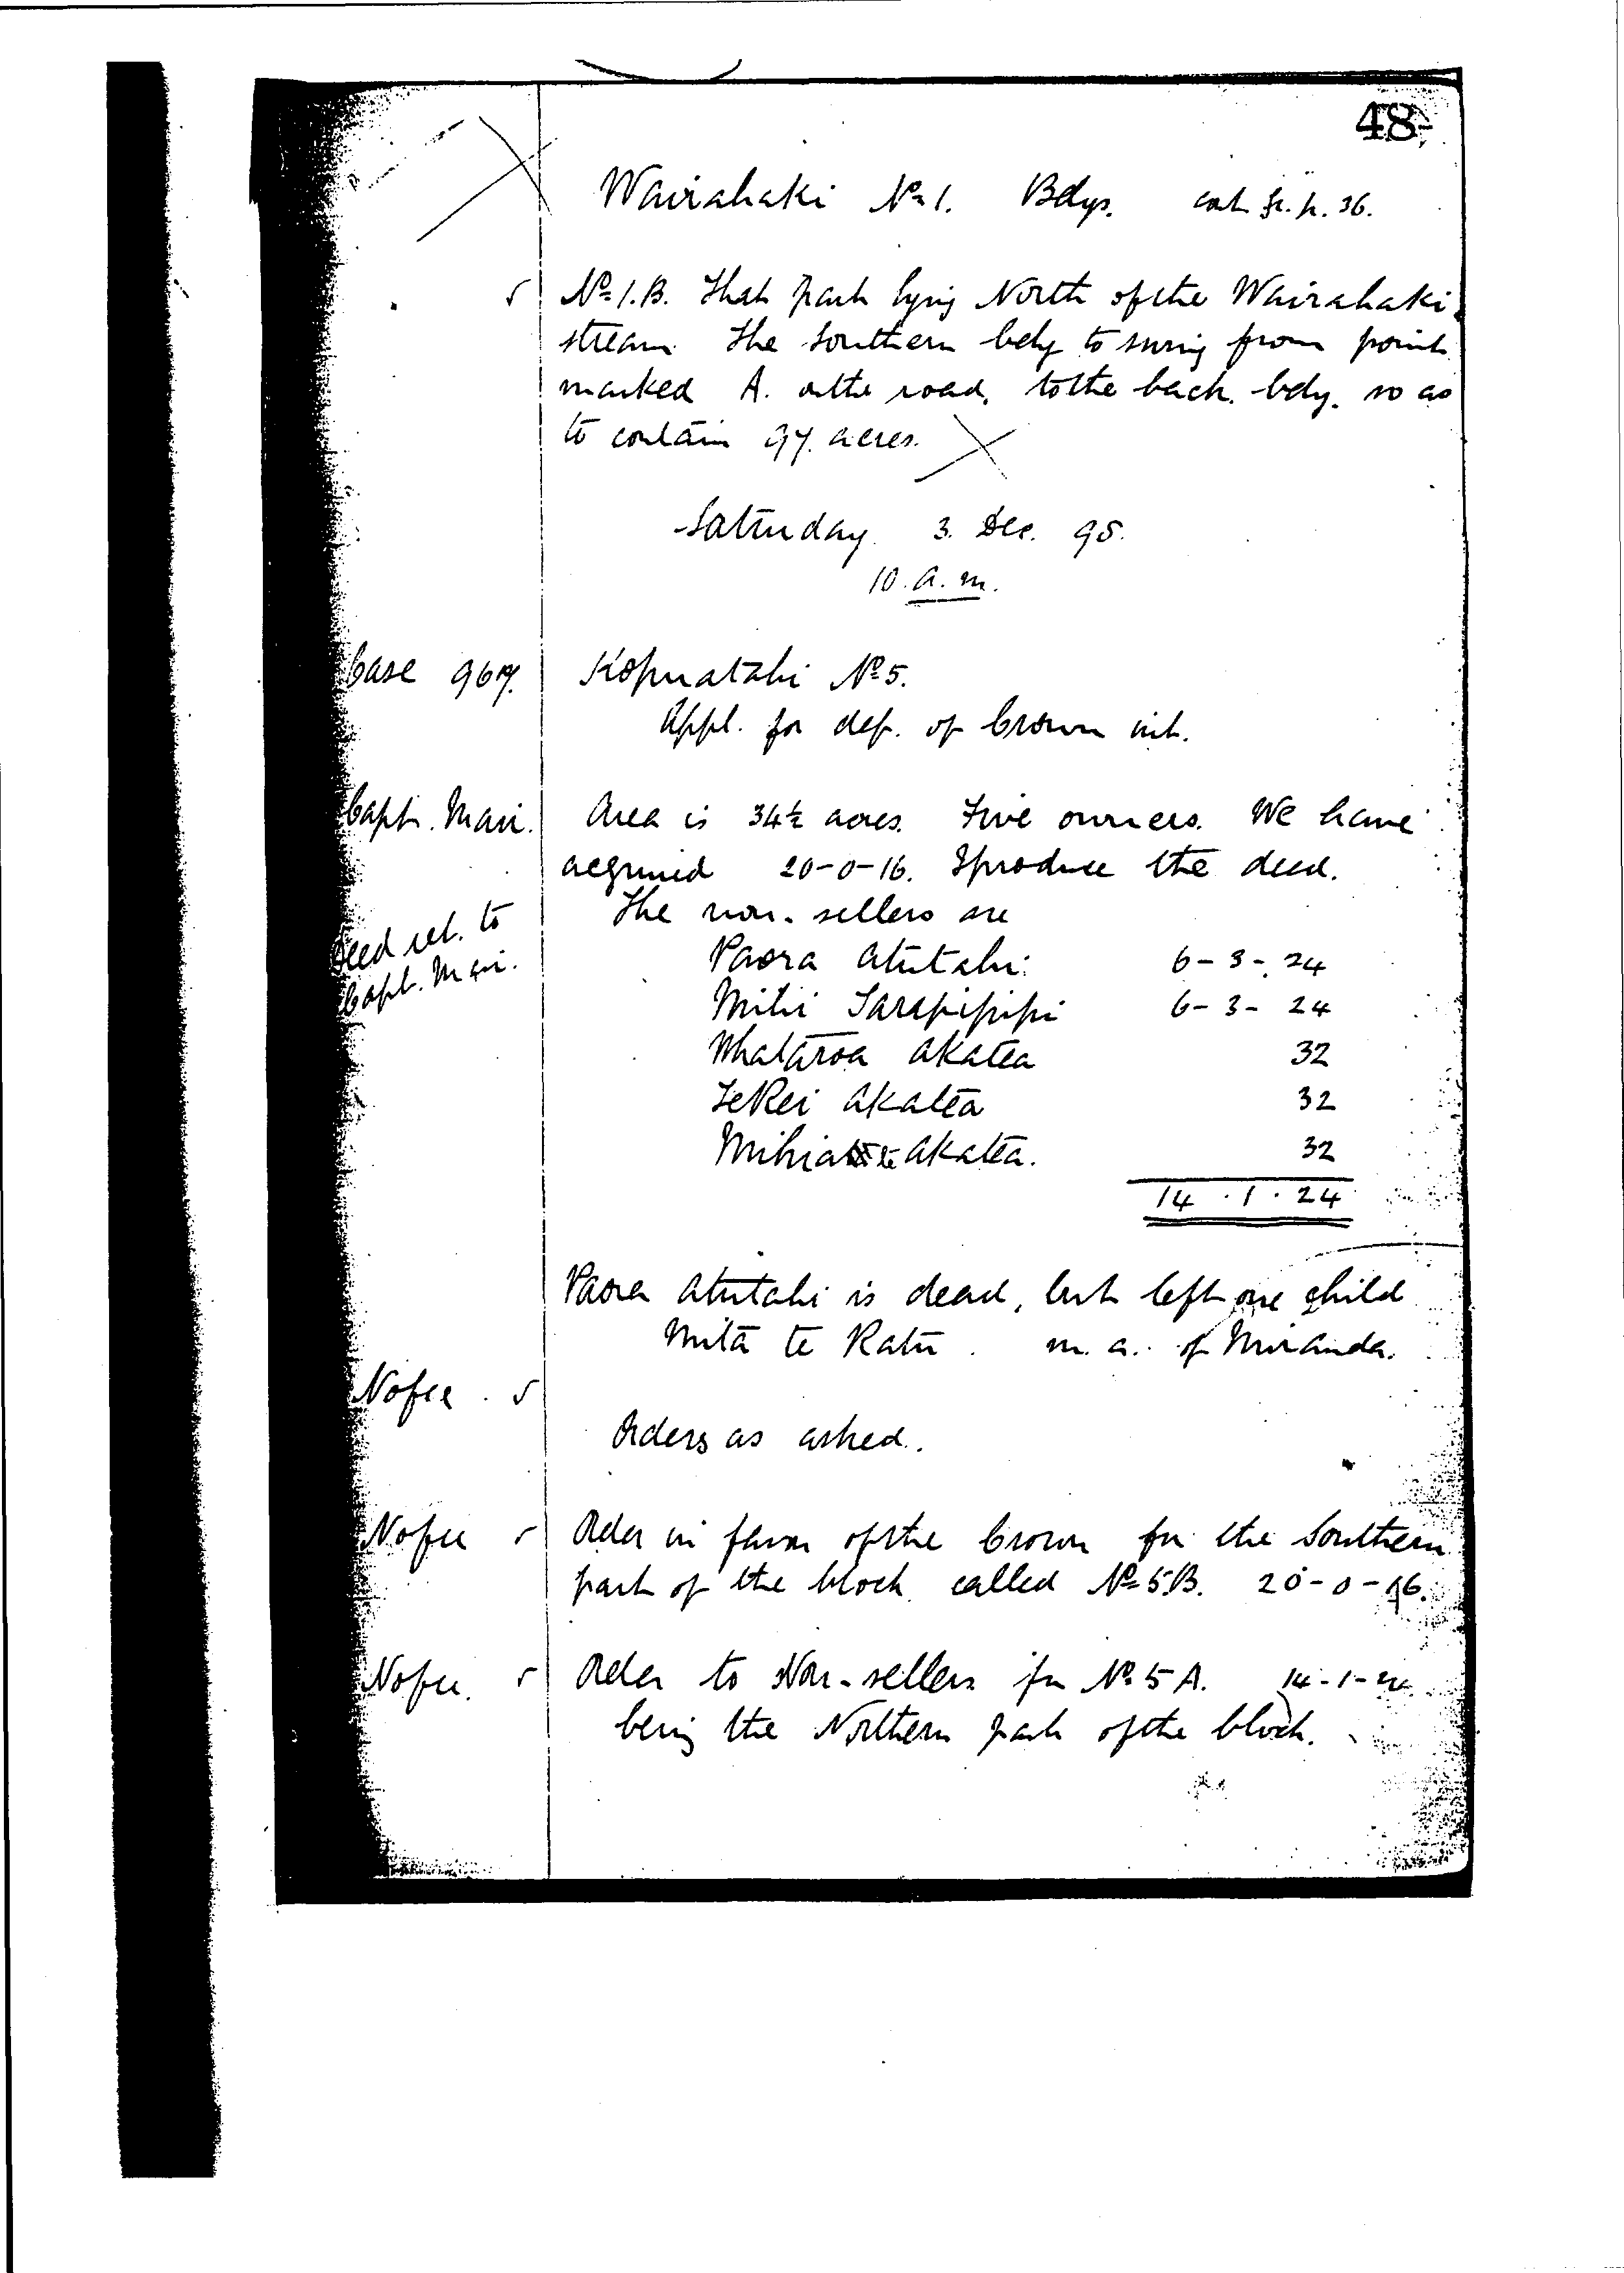 48
Wairahaki No 1. Bdys. cont. fr. p. 36.
No 1.B. That part lying North of the Wairahaki
stream. The Southern bdy to swing from point
marked A. on the road, to the back bdy. so as
to contain 97 acres.
Saturday 3. Dec. 98.
10. a.m.
Case 967. Kopuatahi No 5.
Appl. for def. of Crown int.
Capt. Mair. Area is 34½ acres. Five owners. We have
acquired 20-0-16. I produce the deed.
The non-sellers are
Deed ret. to
Capt. Mair.
Paora Atutahi 6-3-24
Mihi Tarapipipi 6-3-24
Whataroa Akatea 32
Te Rei Akatea 32
Mihiata te Akatea. 32
14.1.24
Paora Atutahi is dead, but left one child
Mita te Ratu. m.a. of Miranda.
No fee
Orders as asked.
No fee Order in favor of the Crown for the Southern
part of the block called No 5.B. 20-0-16.
No fee. Order to Non-sellers for No 5A. 14-1-24
being the Northern part of the block.